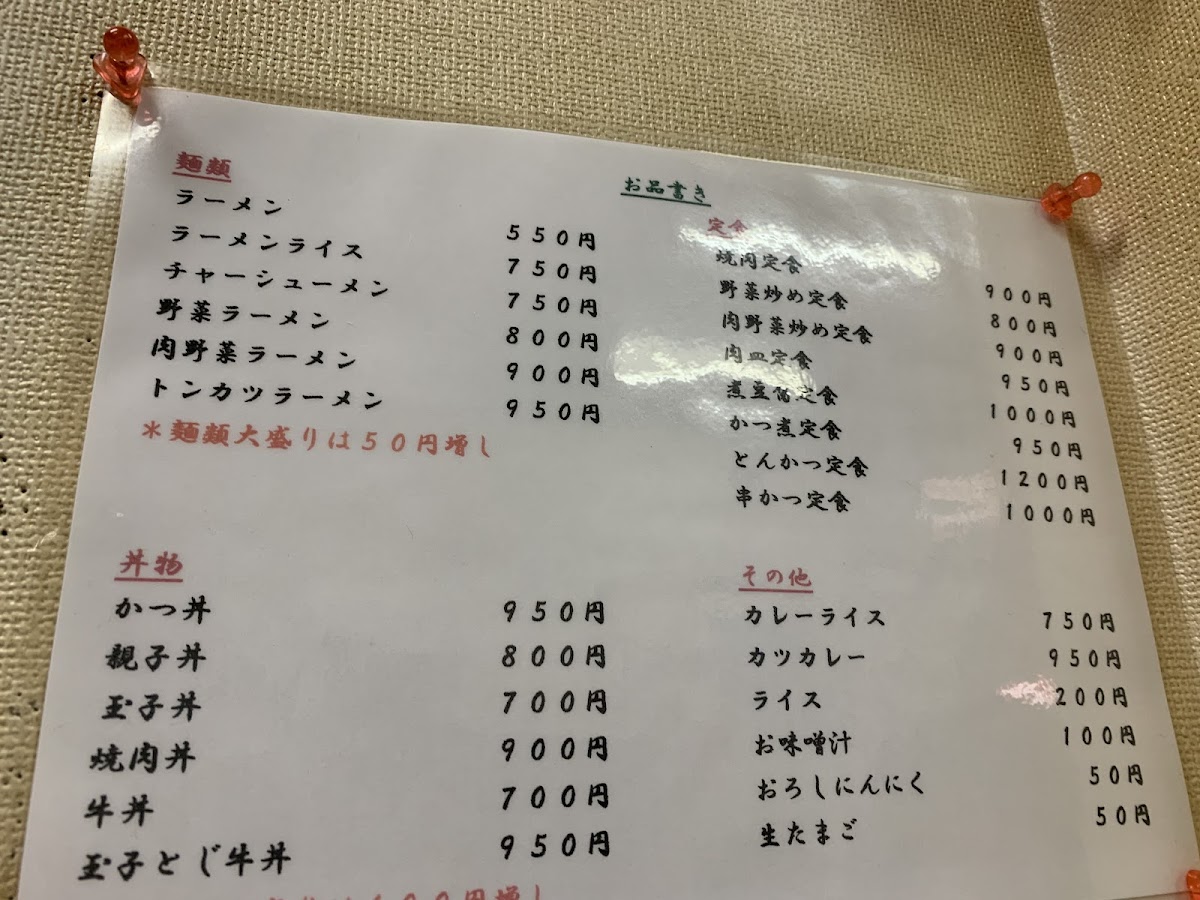 お品書き
麺類
ラーメン 550円
ラーメンライス 750円
チャーシューメン 750円
野菜ラーメン 800円
肉野菜ラーメン 900円
トンカツラーメン 950円
＊麺類大盛りは50円増し
丼物
かつ丼 950円
親子丼 800円
玉子丼 700円
焼肉丼 900円
牛丼 700円
玉子とじ牛丼 950円
円増し
定食
焼肉定食 900円
野菜炒め定食 800円
肉野菜炒め定食 900円
肉皿定食 950円
煮豆腐定食 1000円
かつ煮定食 950円
とんかつ定食 1200円
串かつ定食 1000円
その他
カレーライス 750円
カツカレー 950円
ライス 200円
お味噌汁 100円
おろしにんにく 50円
生たまご 50円